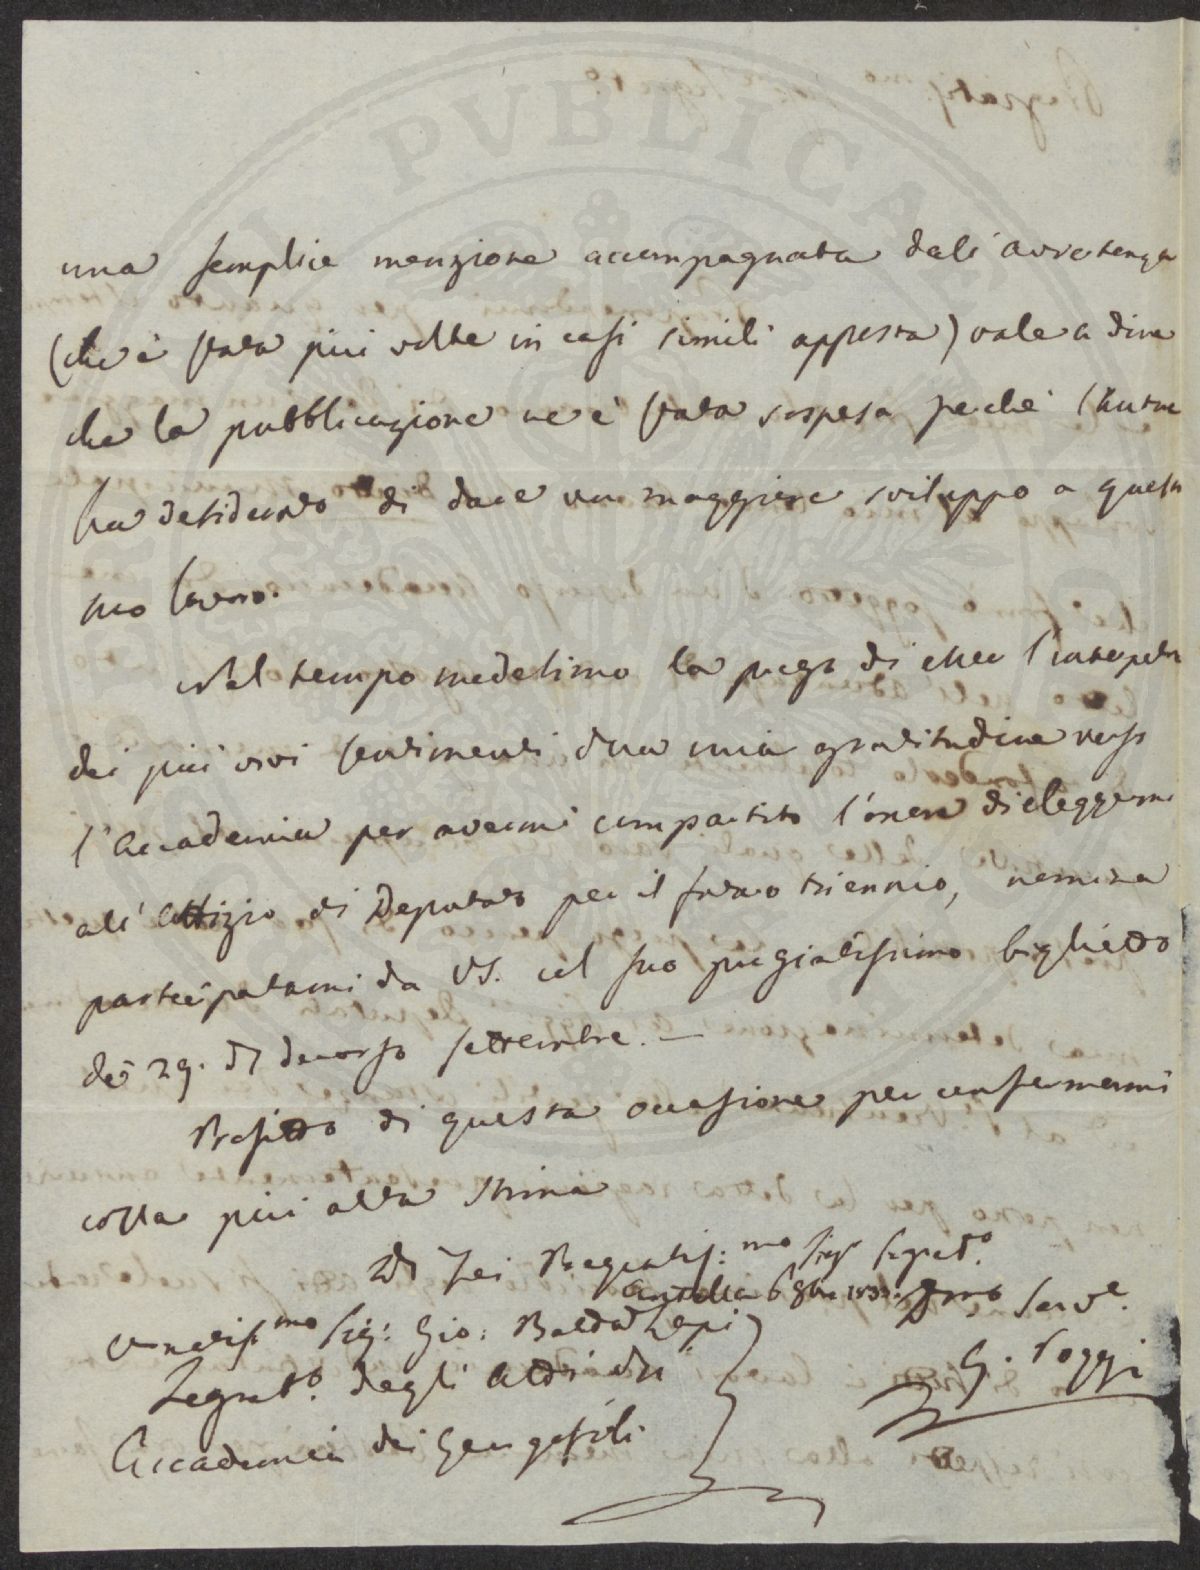 una semplice menzione accompagnata dall'avvertenza
(che è stata più volte in casi simili apposta) vale a dire
che la pubblicazione ne è stata sospesa perchè l'Autore
ha desiderato di dare un maggiore sviluppo a questo
suo lavoro.
Nel tempo medesimo la prego di esser l'interprete
dei più vivi sentimenti della mia gratitudine verso
l'Accademia per avermi compartito l'onore di eleggermi
all'Uffizio di Deputato per il futuro triennio, nomina
partecipatami da VS. col suo pregiatissimo biglietto
de' 29. di decorso settembre. —
Profitto di questa occasione per confermarmi
colla più alta stima
Di Lei Pregiatis:mo Sigr Segret.o
Antella 6 8bre 1833.
Dmo Serve.
Ornatis.mo Sig: Gio: Batta Lapi
Segret.o degli Atti dell'
Accademia dei Georgofili
G. Poggi
PVBLICAE